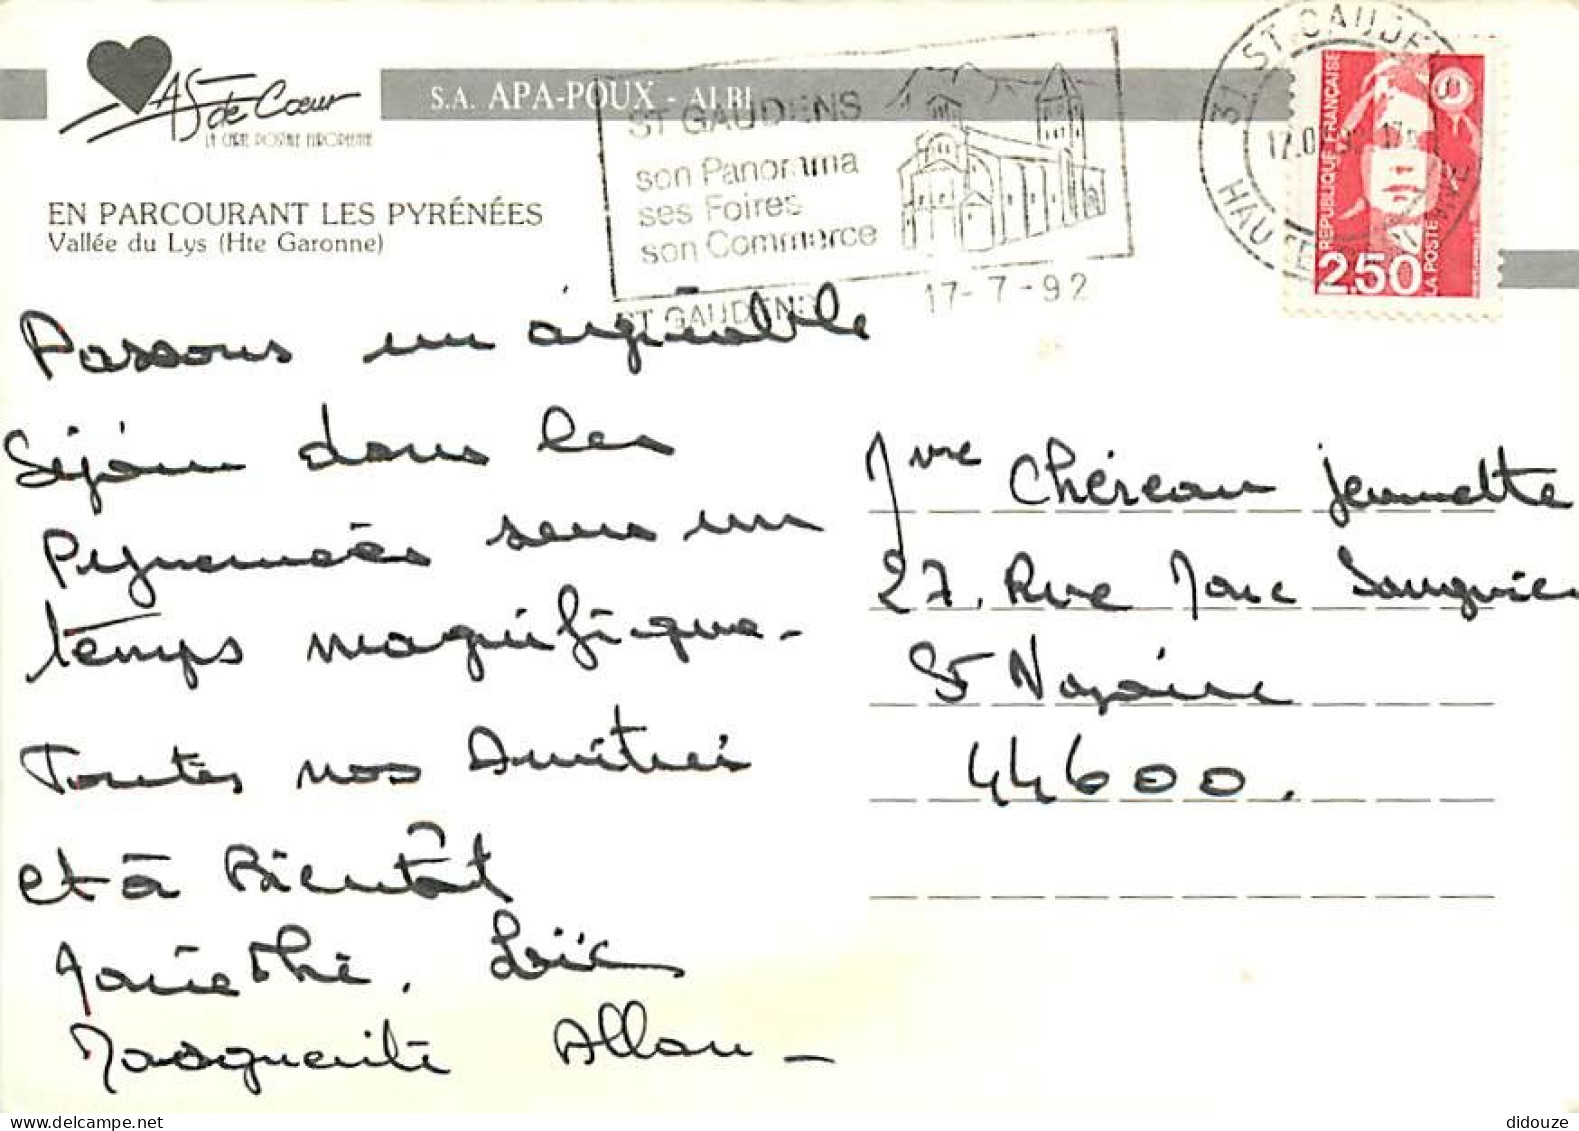 As de Cœur
LA CARTE POSTALE EUROPEENNE
S.A. APA-POUX - ALBI
EN PARCOURANT LES PYRÉNÉES
Vallée du Lys (Hte Garonne)
ST GAUDENS
son Panorama
ses Foires
son Commerce
ST GAUDENS 17-7-92
31 ST GAUDENS
HAUTE GARONNE
REPUBLIQUE FRANÇAISE
2,50
LA POSTE
Passons un agréable
Séjour dans les
Pyrennées sous un
temps magnifique -
Toutes nos Amitiés
et à Bientôt
Loïc
Marguerite Allan -
Mme Chéreau Jeannette
27, Rue Marc Sangnier
St Nazaire
44600.
didouze